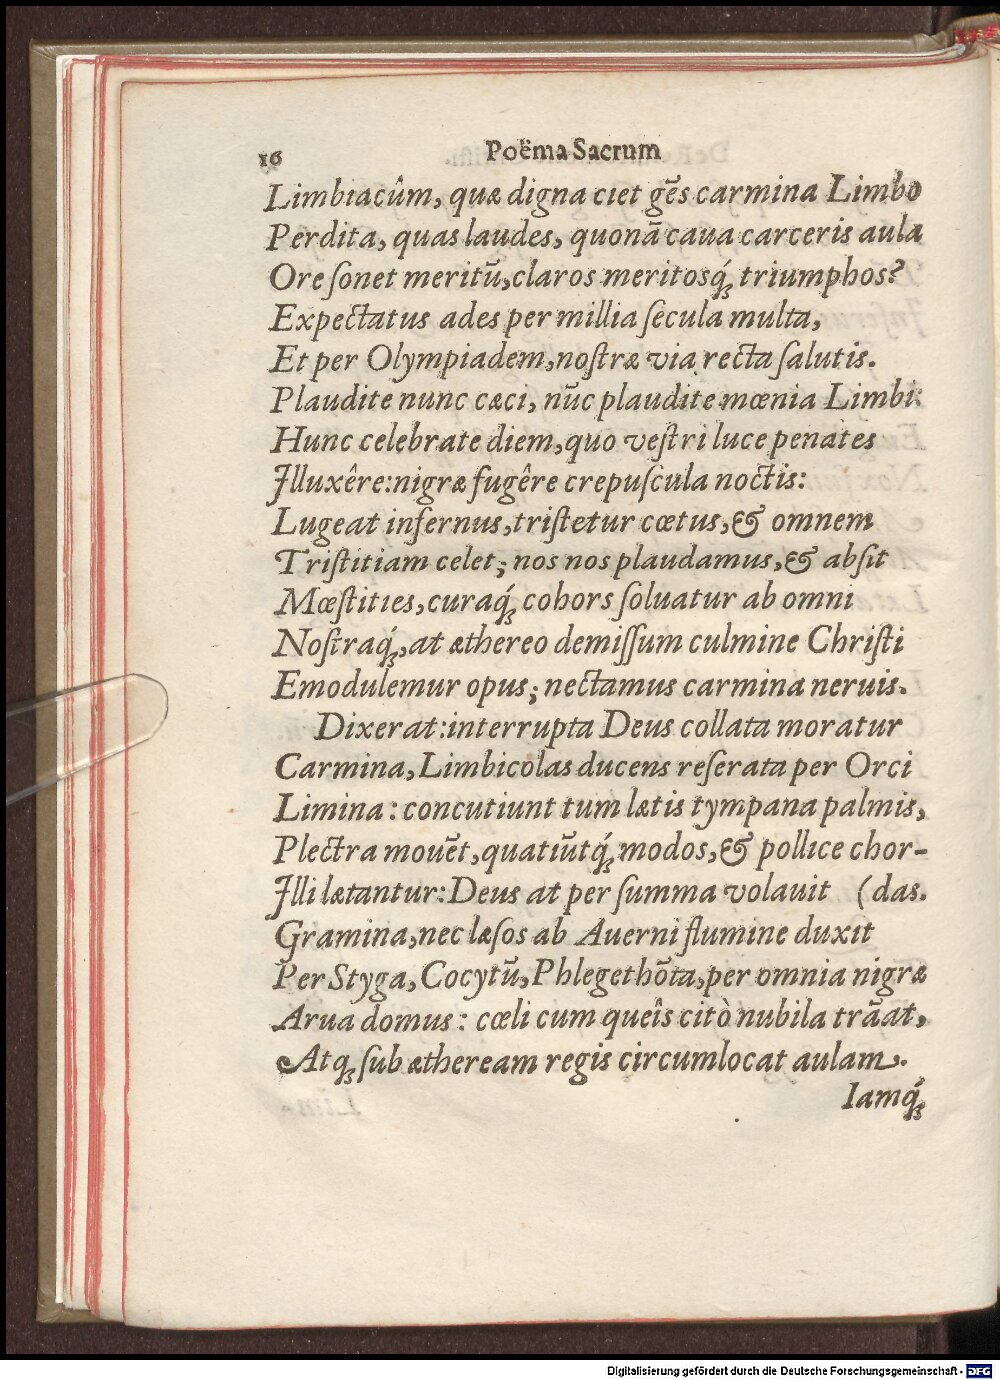 16 Poëma Sacrum
Limbiacûm, quæ digna ciet gēs carmina Limbo
Perdita, quas laudes, quonā caua carceris aula
Ore ſonet meritū, claros meritosq́; triumphos?
Expectatus ades per millia ſecula multa,
Et per Olympiadem, noſtræ via recta ſalutis.
Plaudite nunc cæci, nūc plaudite mœnia Limbi:
Hunc celebrate diem, quo veſtri luce penates
Illuxêre: nigræ fugêre crepuſcula noctis:
Lugeat infernus, triſtetur cœtus, & omnem
Triſtitiam celet; nos nos plaudamus, & abſit
Mœſtities, curaq́; cohors ſoluatur ab omni
Noſtraq́;, at æthereo demiſſum culmine Chriſti
Emodulemur opus; nectamus carmina neruis.
Dixerat: interrupta Deus collata moratur
Carmina, Limbicolas ducens reſerata per Orci
Limina: concutiunt tum lætis tympana palmis,
Plectra mouēt, quatiūtq́; modos, & pollice chor-
Illi lætantur: Deus at per ſumma volauit (das.
Gramina, nec læſos ab Auerni flumine duxit
Per Styga, Cocytū, Phlegethōta, per omnia nigræ
Arua domus: cœli cum queîs citò nubila trāat,
Atq; ſub ætheream regis circumlocat aulam.
Iamq́;
Digitalisierung gefördert durch die Deutsche Forschungsgemeinschaft - DFG